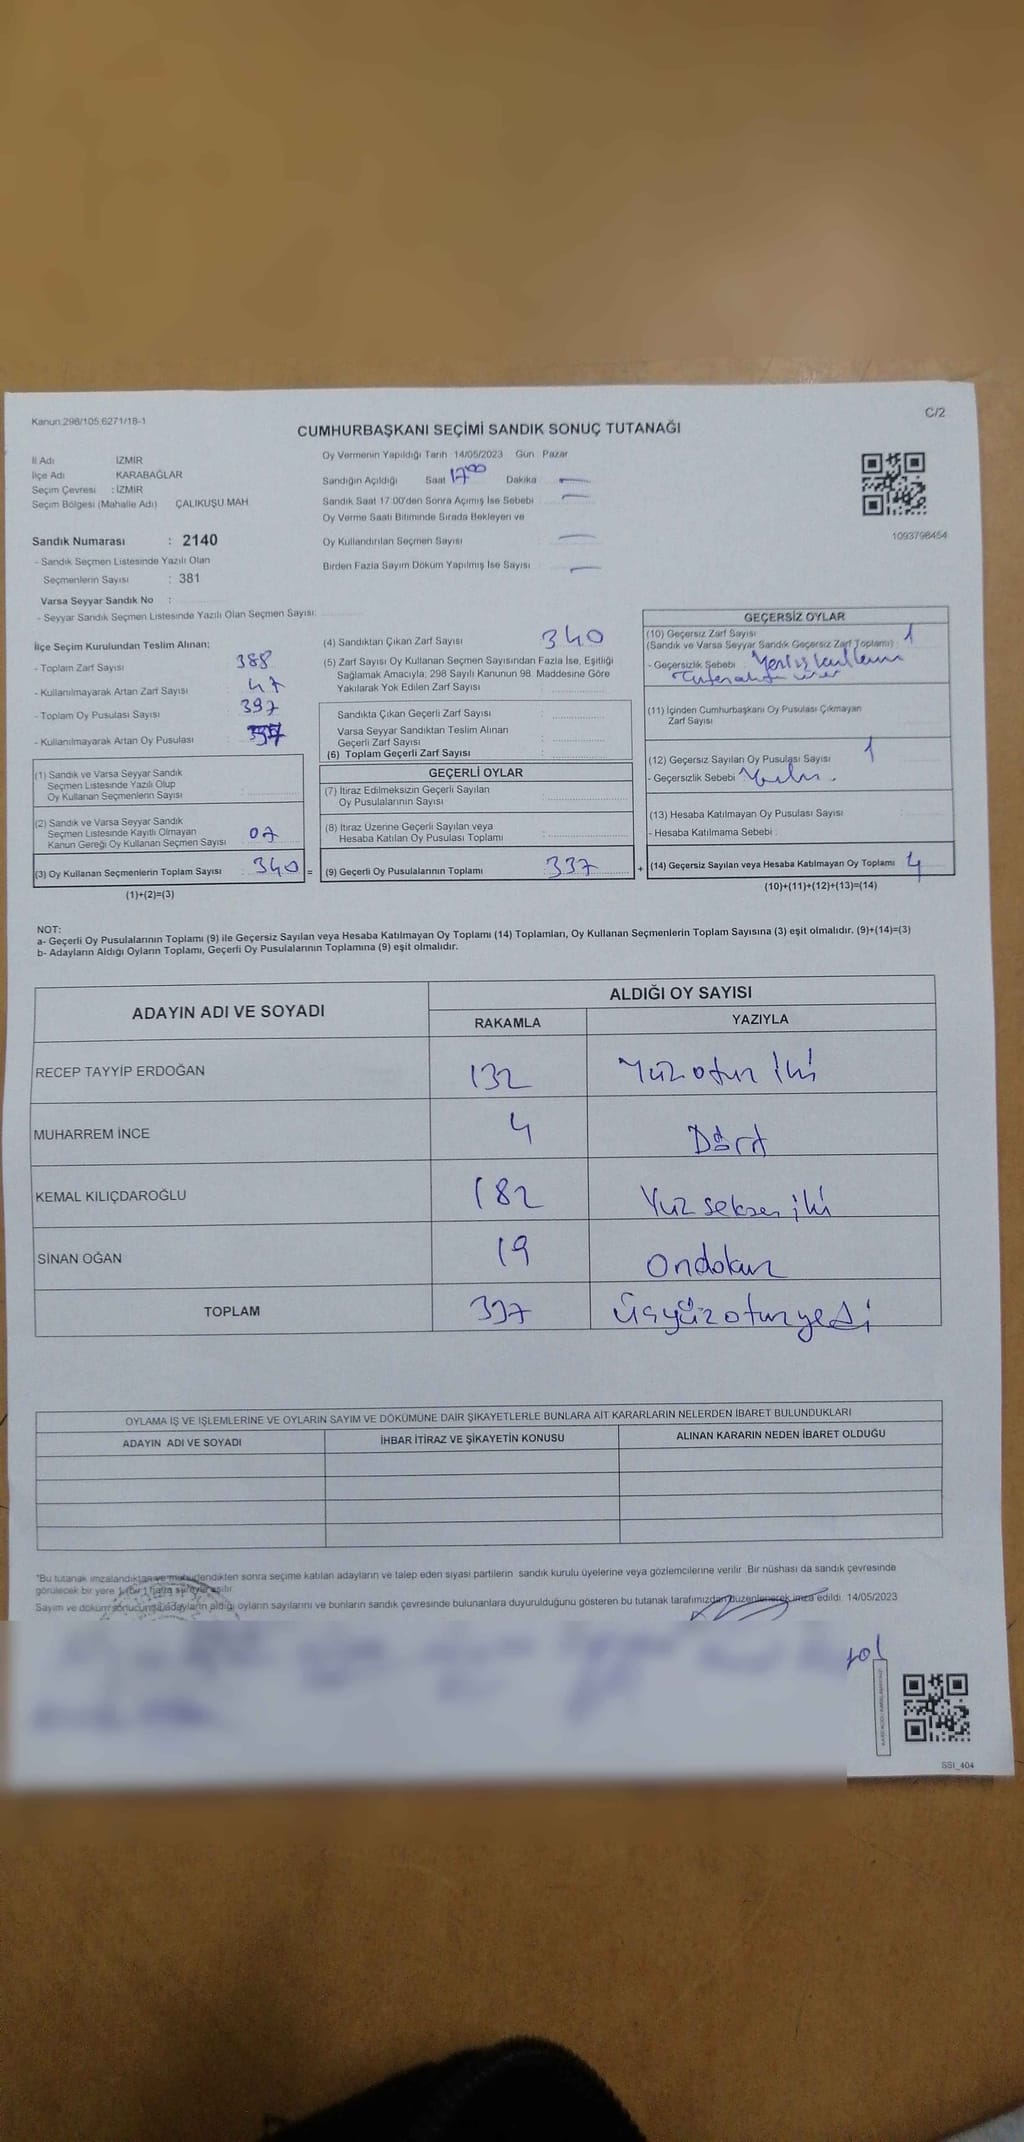 Kanun:298/105,6271/18-1
C/2
CUMHURBAŞKANI SEÇİMİ SANDIK SONUÇ TUTANAĞI
İl Adı : İZMİR
İlçe Adı : KARABAĞLAR
Seçim Çevresi : İZMİR
Seçim Bölgesi (Mahalle Adı) ÇALIKUŞU MAH
Sandık Numarası : 2140
- Sandık Seçmen Listesinde Yazılı Olan
Seçmenlerin Sayısı : 381
Varsa Seyyar Sandık No :
- Seyyar Sandık Seçmen Listesinde Yazılı Olan Seçmen Sayısı:
Oy Vermenin Yapıldığı Tarih 14/05/2023 Gün Pazar
Sandığın Açıldığı Saat 17 00 Dakika —
Sandık Saat 17:00'den Sonra Açılmış İse Sebebi —
Oy Verme Saati Bitiminde Sırada Bekleyen ve
Oy Kullandırılan Seçmen Sayısı —
Birden Fazla Sayım Döküm Yapılmış İse Sayısı —
1093798454
İlçe Seçim Kurulundan Teslim Alınan:
- Toplam Zarf Sayısı 388
- Kullanılmayarak Artan Zarf Sayısı 47
- Toplam Oy Pusulası Sayısı 397
- Kullanılmayarak Artan Oy Pusulası
(1) Sandık ve Varsa Seyyar Sandık
Seçmen Listesinde Yazılı Olup
Oy Kullanan Seçmenlerin Sayısı
(2) Sandık ve Varsa Seyyar Sandık
Seçmen Listesinde Kayıtlı Olmayan
Kanun Gereği Oy Kullanan Seçmen Sayısı 07
(3) Oy Kullanan Seçmenlerin Toplam Sayısı 340 =
(1)+(2)=(3)
(4) Sandıktan Çıkan Zarf Sayısı 340
(5) Zarf Sayısı Oy Kullanan Seçmen Sayısından Fazla İse, Eşitliği
Sağlamak Amacıyla, 298 Sayılı Kanunun 98. Maddesine Göre
Yakılarak Yok Edilen Zarf Sayısı :
Sandıkta Çıkan Geçerli Zarf Sayısı
Varsa Seyyar Sandıktan Teslim Alınan
Geçerli Zarf Sayısı :
(6) Toplam Geçerli Zarf Sayısı :
GEÇERLİ OYLAR
(7) İtiraz Edilmeksizin Geçerli Sayılan
Oy Pusulalarının Sayısı :
(8) İtiraz Üzerine Geçerli Sayılan veya
Hesaba Katılan Oy Pusulası Toplamı :
(9) Geçerli Oy Pusulalarının Toplamı 337 +
GEÇERSİZ OYLAR
(10) Geçersiz Zarf Sayısı 1
(Sandık ve Varsa Seyyar Sandık Geçersiz Zarf Toplamı) :
- Geçersizlik Sebebi
(11) İçinden Cumhurbaşkanı Oy Pusulası Çıkmayan
Zarf Sayısı
(12) Geçersiz Sayılan Oy Pusulası Sayısı 1
- Geçersizlik Sebebi
(13) Hesaba Katılmayan Oy Pusulası Sayısı
- Hesaba Katılmama Sebebi :
(14) Geçersiz Sayılan veya Hesaba Katılmayan Oy Toplamı 4
(10)+(11)+(12)+(13)=(14)
NOT:
a- Geçerli Oy Pusulalarının Toplamı (9) ile Geçersiz Sayılan veya Hesaba Katılmayan Oy Toplamı (14) Toplamları, Oy Kullanan Seçmenlerin Toplam Sayısına (3) eşit olmalıdır. (9)+(14)=(3)
b- Adayların Aldığı Oyların Toplamı, Geçerli Oy Pusulalarının Toplamına (9) eşit olmalıdır.
ADAYIN ADI VE SOYADI ALDIĞI OY SAYISI
RAKAMLA YAZIYLA
RECEP TAYYİP ERDOĞAN 132 Yüz otuz iki
MUHARREM İNCE 4 Dört
KEMAL KILIÇDAROĞLU 182 Yüz seksen iki
SİNAN OĞAN 19 Ondokuz
TOPLAM 337 Üçyüzotuzyedi
OYLAMA İŞ VE İŞLEMLERİNE VE OYLARIN SAYIM VE DÖKÜMÜNE DAİR ŞİKAYETLERLE BUNLARA AİT KARARLARIN NELERDEN İBARET BULUNDUKLARI
ADAYIN ADI VE SOYADI İHBAR İTİRAZ VE ŞİKAYETİN KONUSU ALINAN KARARIN NEDEN İBARET OLDUĞU
*Bu tutanak imzalandıktan ve mühürlendikten sonra seçime katılan adayların ve talep eden siyasi partilerin sandık kurulu üyelerine veya gözlemcilerine verilir. Bir nüshası da sandık çevresinde
görülecek bir yere 1 (bir) hafta süreyle asılır.
Sayım ve döküm sonucunda adayların aldığı oyların sayılarını ve bunların sandık çevresinde bulunanlara duyurulduğunu gösteren bu tutanak tarafımızdan düzenlenerek imza edildi. 14/05/2023
SSI_404